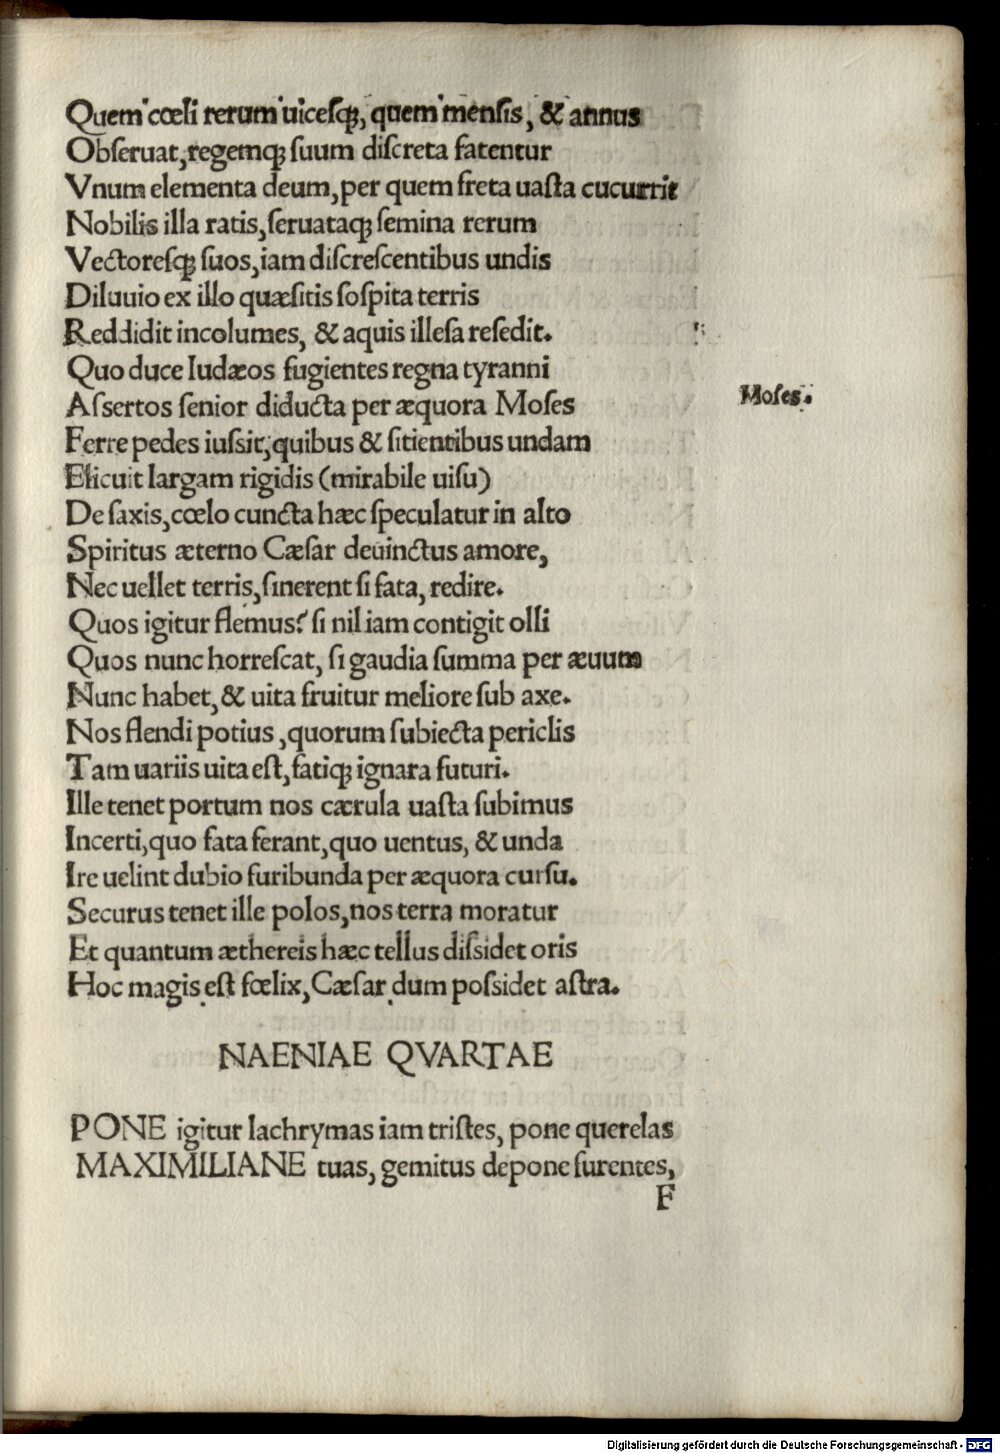 Quem cœli rerum uiceſqꝫ, quem menſis, & annus
Obſeruat, regemqꝫ ſuum diſcreta fatentur
Vnum elementa deum, per quem freta uaſta cucurrit
Nobilis illa ratis, ſeruataqꝫ ſemina rerum
Vectoreſqꝫ ſuos, iam diſcreſcentibus undis
Diluuio ex illo quæſitis ſoſpita terris
Reddidit incolumes, & aquis illeſa reſedit.
Quo duce Iudæos fugientes regna tyranni
Aſſertos ſenior diducta per æquora Moſes
Moſes.
Ferre pedes iuſſit, quibus & ſitientibus undam
Elicuit largam rigidis (mirabile uiſu)
De ſaxis, cœlo cuncta hæc ſpeculatur in alto
Spiritus æterno Cæſar deuinctus amore,
Nec uellet terris, ſinerent ſi fata, redire.
Quos igitur flemus? ſi nil iam contigit olli
Quos nunc horreſcat, ſi gaudia ſumma per æuum
Nunc habet, & uita fruitur meliore ſub axe.
Nos flendi potius, quorum ſubiecta periclis
Tam uariis uita eſt, fatiqꝫ ignara futuri.
Ille tenet portum nos cærula uaſta ſubimus
Incerti, quo fata ferant, quo uentus, & unda
Ire uelint dubio furibunda per æquora curſu.
Securus tenet ille polos, nos terra moratur
Et quantum æthereis hæc tellus diſſidet oris
Hoc magis eſt fœlix, Cæſar dum poſſidet aſtra.
NAENIAE QVARTAE
PONE igitur lachrymas iam triſtes, pone querelas
MAXIMILIANE tuas, gemitus depone furentes,
F
Digitalisierung gefördert durch die Deutsche Forschungsgemeinschaft - DFG